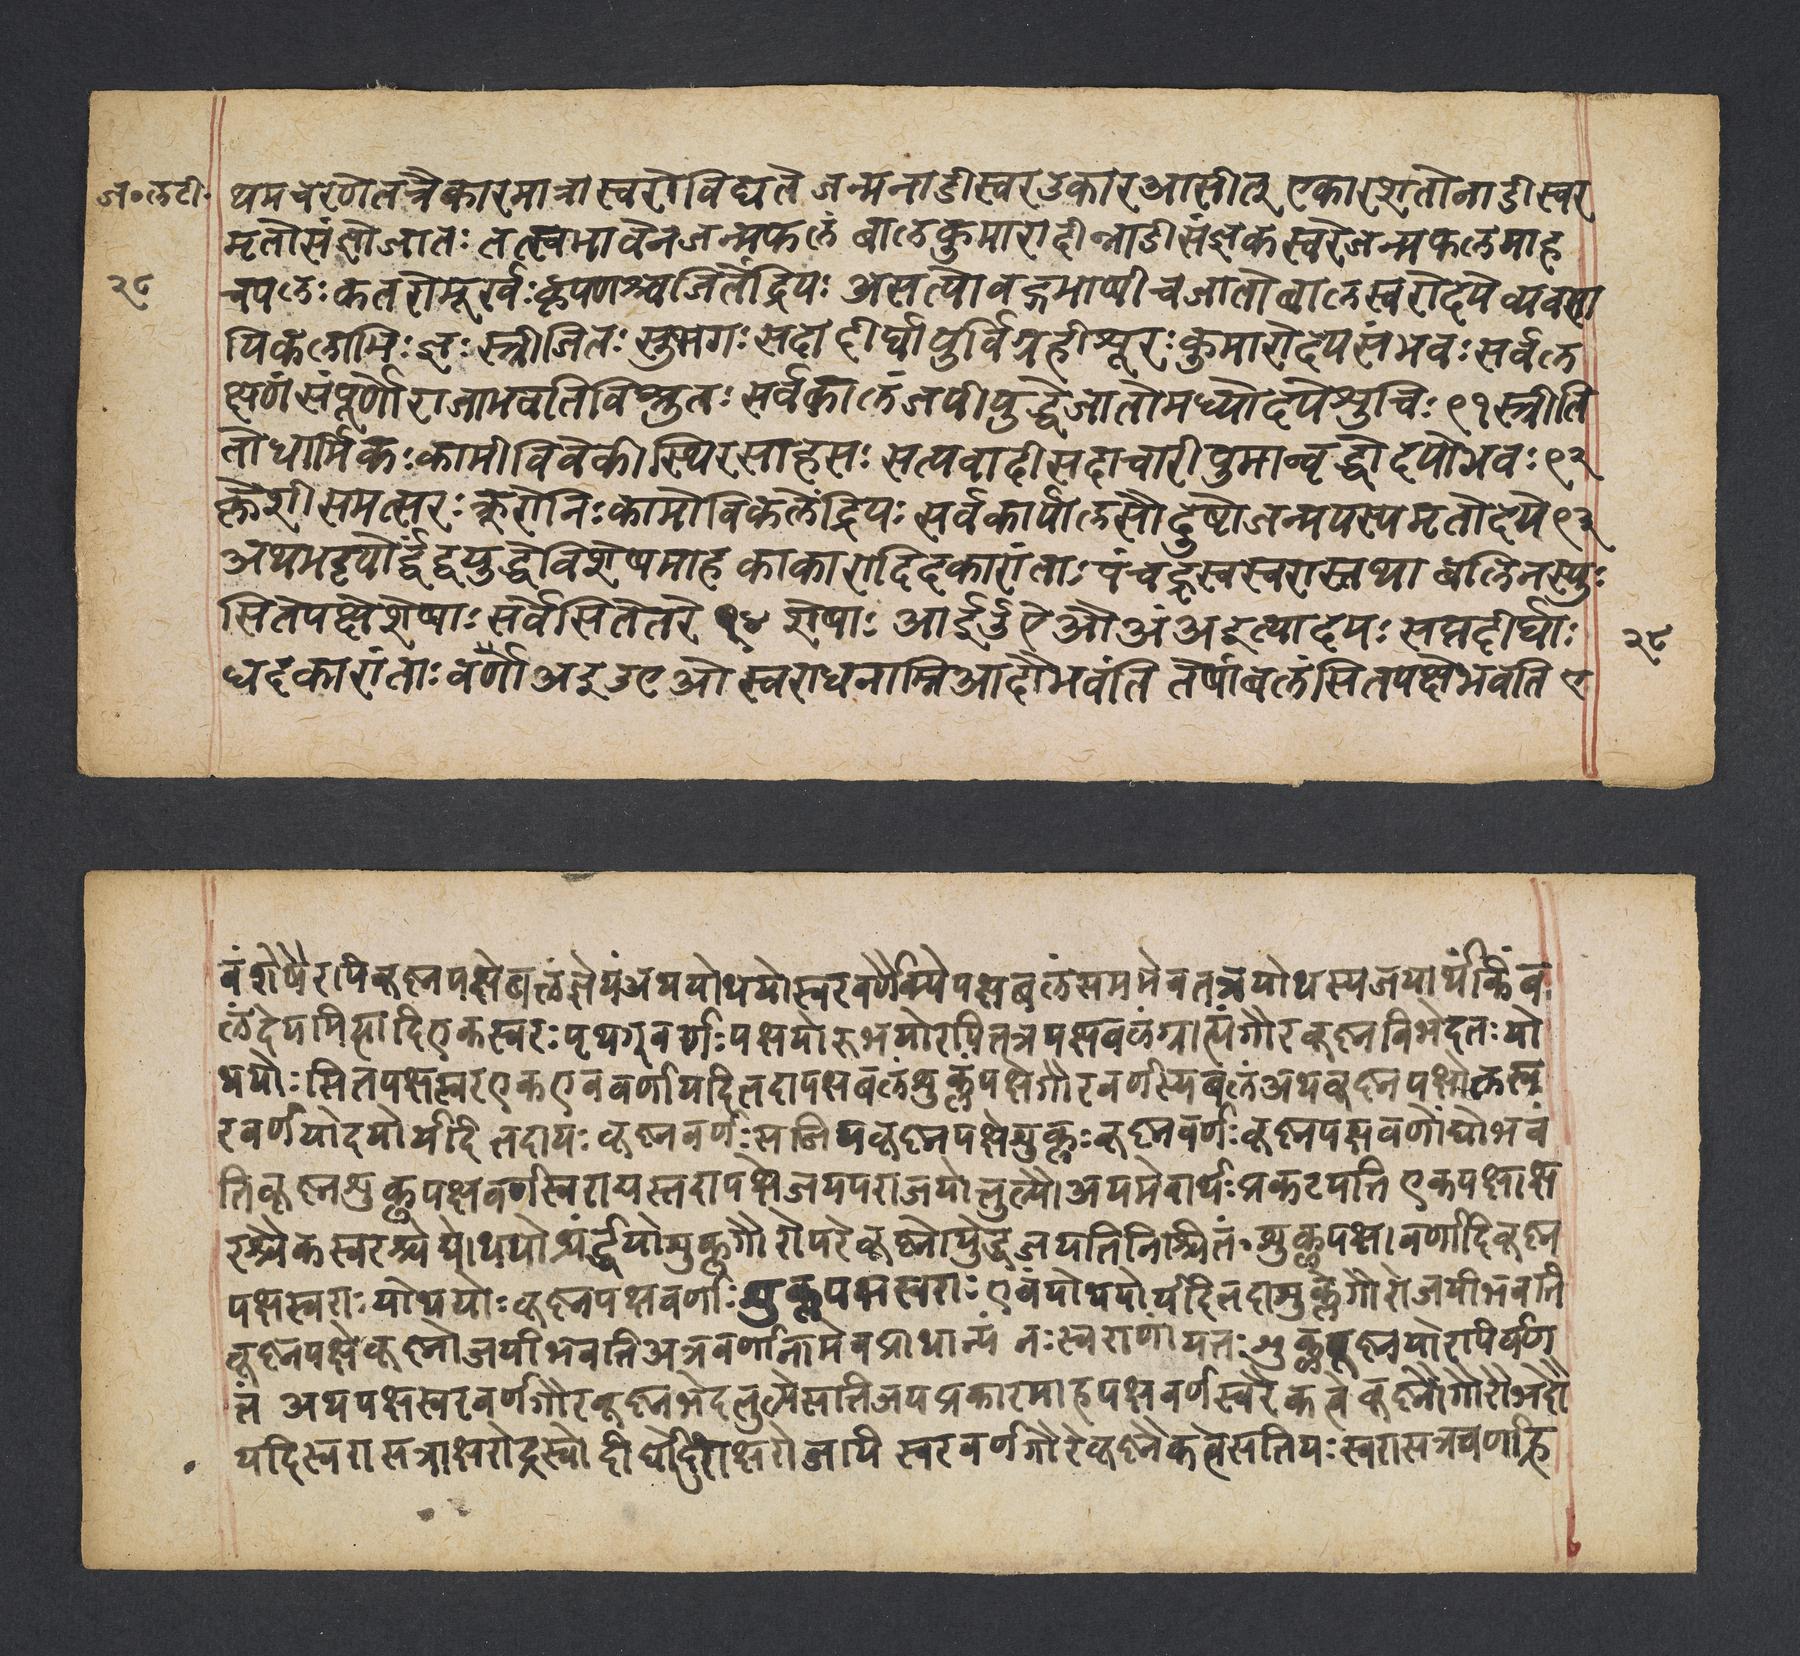 ज॰लटी॰
थमचरणेतत्रैकारमात्रास्वरोविद्यते जन्मनाडीस्वरउकारआसीत् एकारशतोनाडीस्वर
मृतौसंज्ञोजातः तत्स्वभावेनजन्मफलं बालकुमारादीन्नाडीसंज्ञकस्वरेजन्मफलमाह
२८
चपलः कतरोमूर्खःकृपणश्चजितेंद्रियः असत्यो चजातोबालेस्वरोदये व्यवसा
यि ज्ञः स्त्रीजितः सुभगः सदा दीर्घायुर्विग्रहीशूरः कुमारोदयसंभवः सर्वल
क्षणसंपूर्णोराजाभवतिविश्रुतः सर्वकालंजयीयुद्धेजातोमध्योदयेशुचिः ९१ स्त्रीजि
तोधार्मिकः कामीविवेकीस्थिरसाहसः सत्यवादीसदाचारीपुमान्वृद्धोदयोभवः ९२
क्लेशीसमत्सरः क्रूरोनिःकामोविकलेंद्रियः सर्वकार्यालसोदुष्टोजन्मयस्यमृतोदये ९३
अथभटयोर्द्वंद्वयुद्धेविशेषमाह काकारादिदकारांताः पंचह्रस्वस्वरास्तथा बलिनस्युः
सितेपक्षेशेषाः सर्वेसितेतरे ९४ शेषाः आईऊऐऔअंअइत्यादयः सप्तदीर्घाः
२८
घदकारांताः वर्णाअइउएओ स्वराधनाम्निआदौभवंति तेषांबलंसितपक्षेभवति ए
वंशेषैरपिकृष्णपक्षेबलंज्ञेयंअथयोधयोस्वरवर्ण पक्षबलंसममेवतत्रयोधस्यजयार्थंकिंब
लंदेयमित्याहएकस्वरः पृथग्वर्णः पक्षयोरुभयोरपितत्रपक्षबलंग्राह्यंगौरकृष्णविभेदतः यो
धयोः सितपक्षस्वरएकएववर्णायदितदापक्षबलंशुक्लपक्षेगौरवर्णस्यबलंअथकृष्णपक्षोक्तस्व
रवर्णयोदयोर्यदि तदायः कृष्णवर्णः कृष्णपक्षेशुक्लः कृष्णवर्णः कृष्णपक्षवर्णो भवं
तिकृष्णशुक्लपक्षवर्णस्वरायस्तदापक्षेजयपराजयोतुल्यौ अयमेवार्थः प्रकटयति एकपक्षाक्ष
रश्चैकस्वरश्चे योधयोर्द्वयोशुक्लगौरोपरेकृष्णोयुद्धेजयतिनिश्चितं शुक्लपक्षवर्णादिकृष्ण
पक्षस्वराः योधयोः कृष्णपक्षवर्णाः शुक्लपक्षस्वराः एवंयोधयोर्यदितदाशुक्लेगौरोजयीभवति
कृष्णपक्षेकृष्णोजयीभवतिअत्रवर्णानामेवप्राधान्यं नःस्वराणांयतः शुक्लकृष्णयोरपिवर्ण
तं अथपक्षस्वरवर्णगौरकृष्णभेदतुल्येसतिजयप्रकारमाहपक्षवर्णस्वरैकत्वेकृष्णोगौरोभटौ
यदिस्वरासन्नाक्षरोह्रस्वो दीर्घो जापी स्वरवर्णगौरेकृष्णैकत्वेसतियः स्वरासन्नवर्णाह्रि